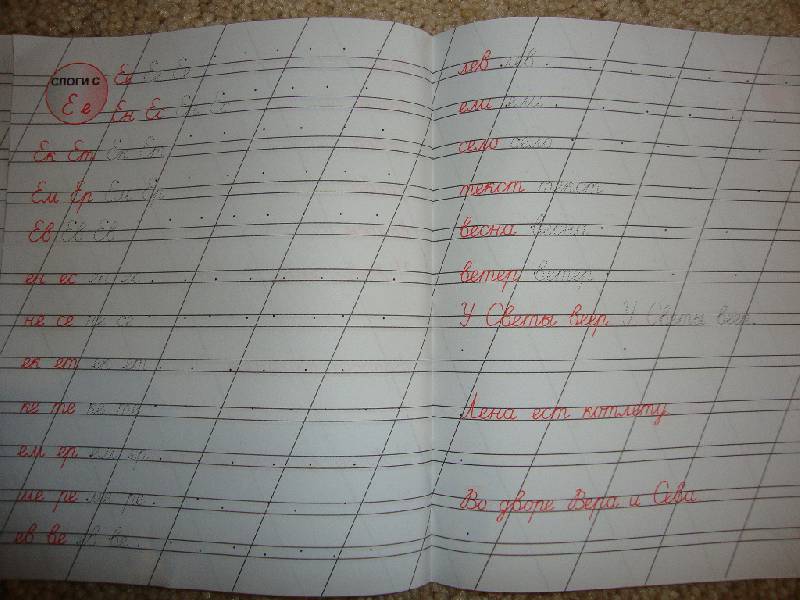 СЛОГИ С
Е е
Ее Ее Ее
Ен Ес Ен Ес
Ек Ет Ек Ет
Ем Ер Ем Ер
Ев Ев Ев
ен ес ен ес
не се не се
ек ет ек ет
ке те ке те
ем ер ем ер
ме ре ме ре
ев ве ев ве
лев лев
ели ели
село село
текст текст
весна весна
ветер ветер
У Светы веер. У Светы веер.
Лена ест котлету.
Во дворе Вера и Сева.